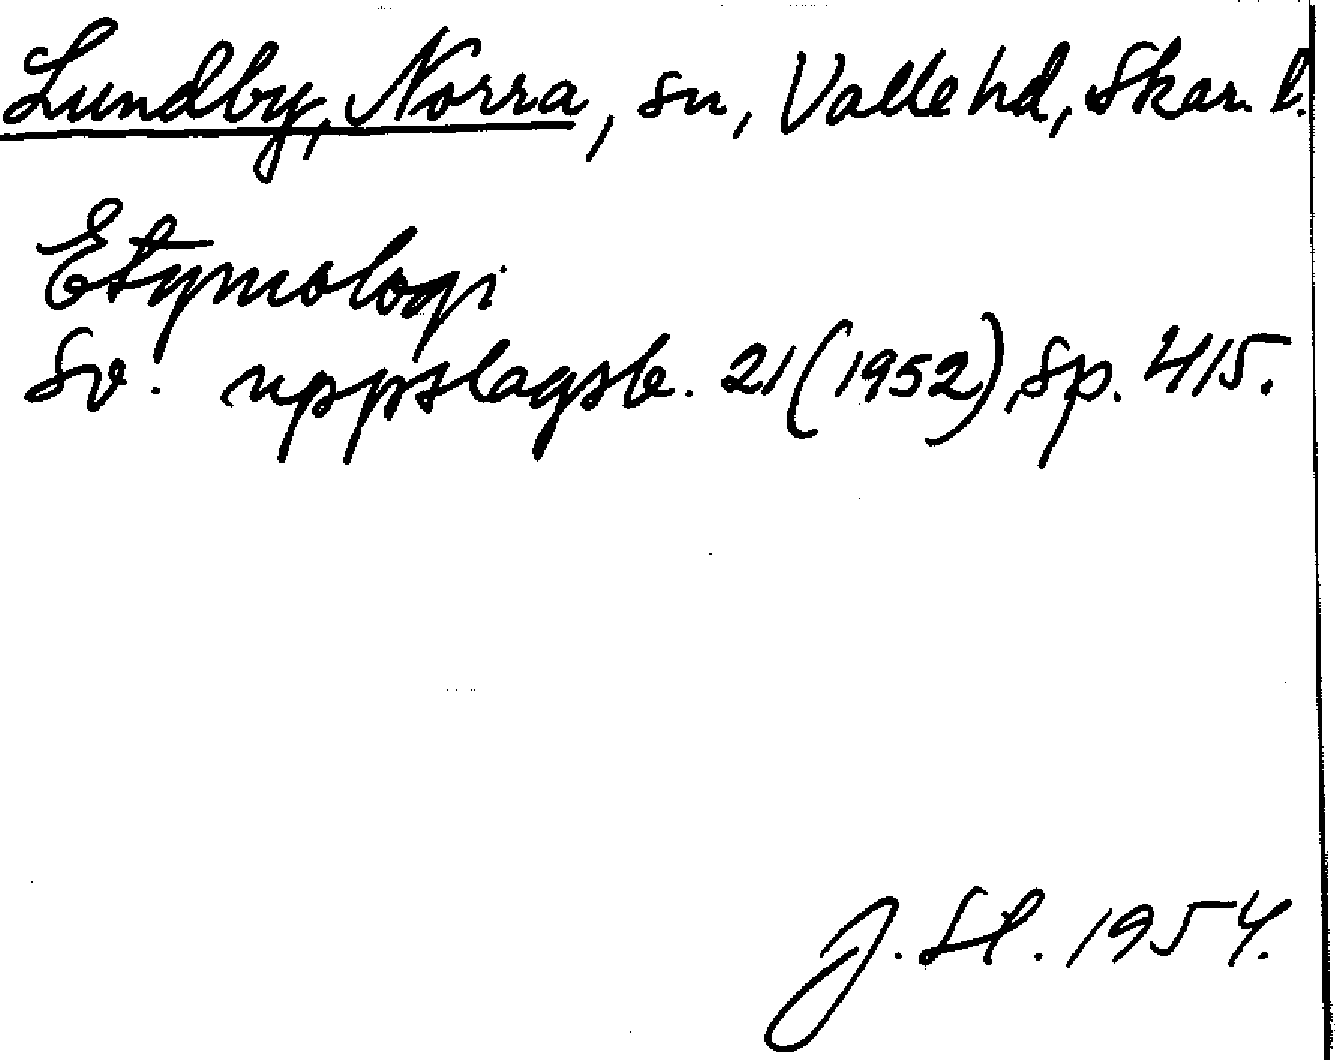 Lundby, Norra, sn, Valle hd, Skar. l.
Etymologi
Sv. uppslagsb. 21 (1952) sp. 415.
J. Sl. 1954.